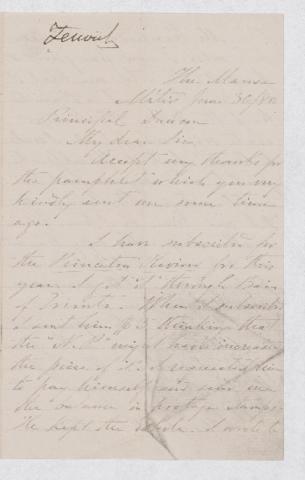 Fenwick
The Manse
Métis June 30/80
Principal Dawson
My dear Sir,
Accept my thanks for
the pamphlet which you very
kindly sent me some time
ago.
I have subscribed for
the Princeton Review for this
year. I got it through Bain
of Toronto. When I subscribed
I sent him $2 thinking that
the "N.P." might have increased
the price of it. I requested him
to pay himself and send me
the balance in postage stamps.
He kept the whole. I wrote to